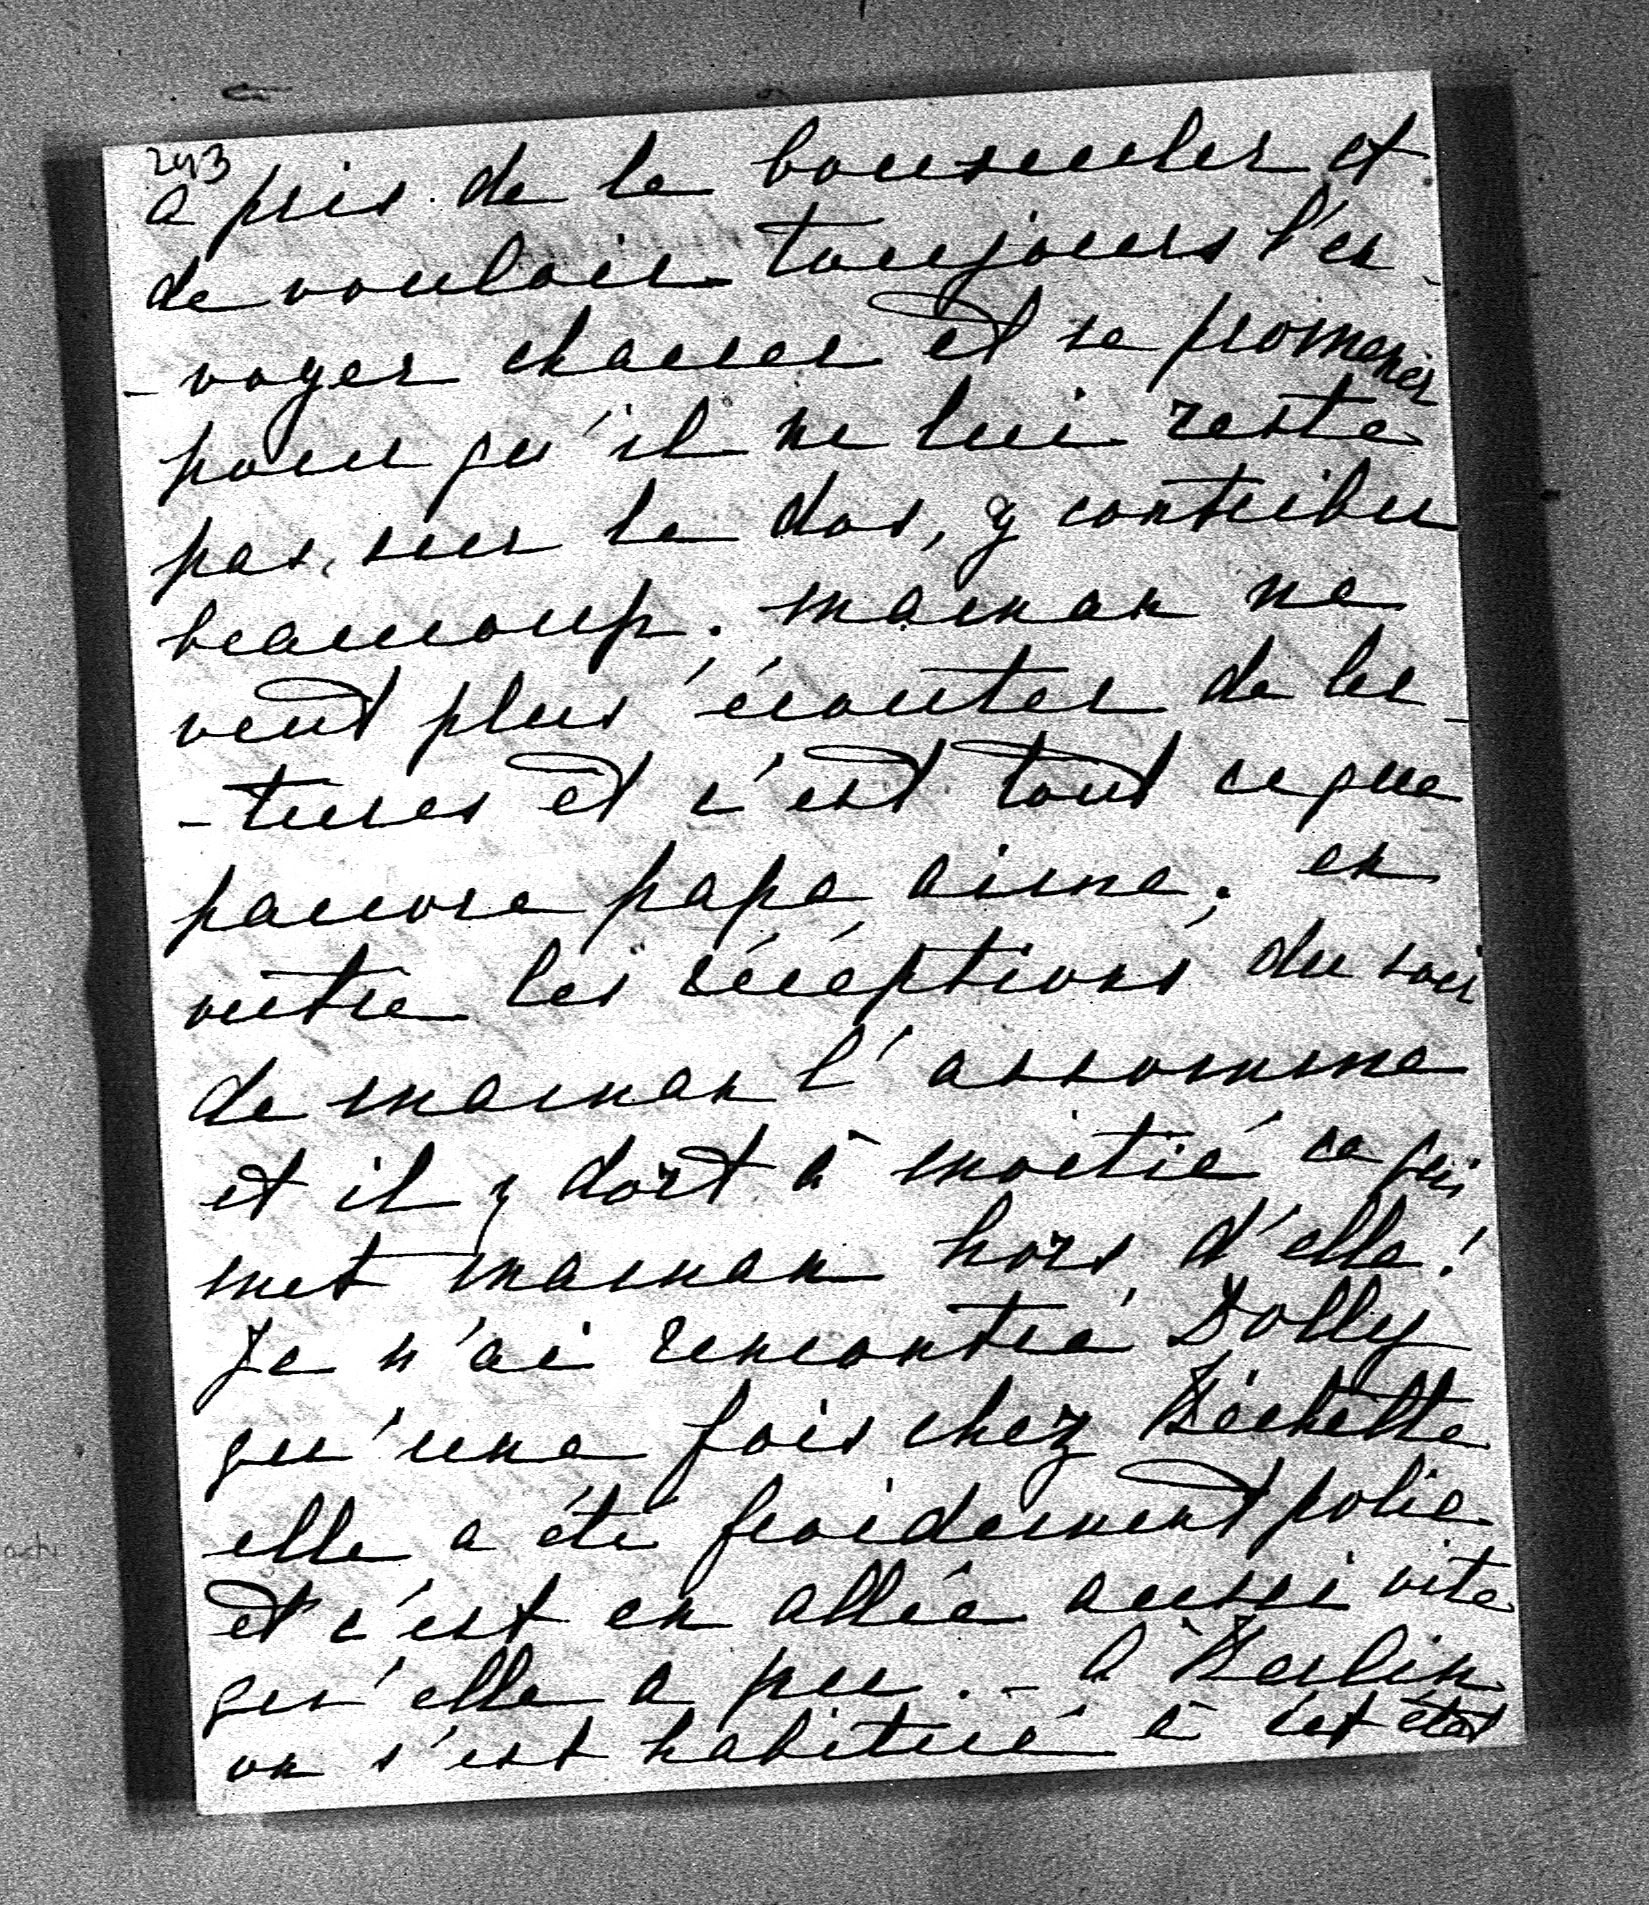 243
a pris de le bousculer et
de vouloir toujours l'en-
-voyer chasser et se promener
pour qu'il ne lui reste
pas sur le dos, y contribue
beaucoup. maman ne
veut plus écouter de lec-
-tures et c'est tout ce que
pauvre papa aime; en
outre les réceptions du soir
de maman l'assomme
et il y dort à moitié ce qui
met maman hors d'elle!
Je n'ai rencontré Dolly
qu'une fois chez Béchette
elle a été froidement polie
et s'est en allée aussi vite
qu'elle a pu. - à Berlin
on s'est habitué à cet état